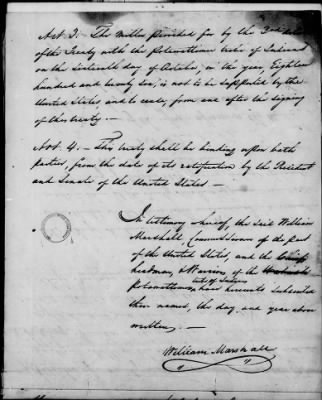 Art. 3. – The Miller provided for by the 3rd article
of the Treaty with the Potawattimie tribe of Indians
on the sixteenth day of October, in the year, Eighteen
hundred and twenty six, is not to be supported by the
United States and to cease, from and after the signing
of this treaty. –
Art. 4. – This treaty shall be binding upon both
parties, from the date of its ratification by the President
and Senate of the United States –
In testimony whereof, the said William
Marshall, Commissioner of the part
of the United States, and the Chiefs
headman, & Warriors, of the
Potawattimie tribe of Indians have hereunto subscribed
their names, this day, and year above
written. –
William Marshall